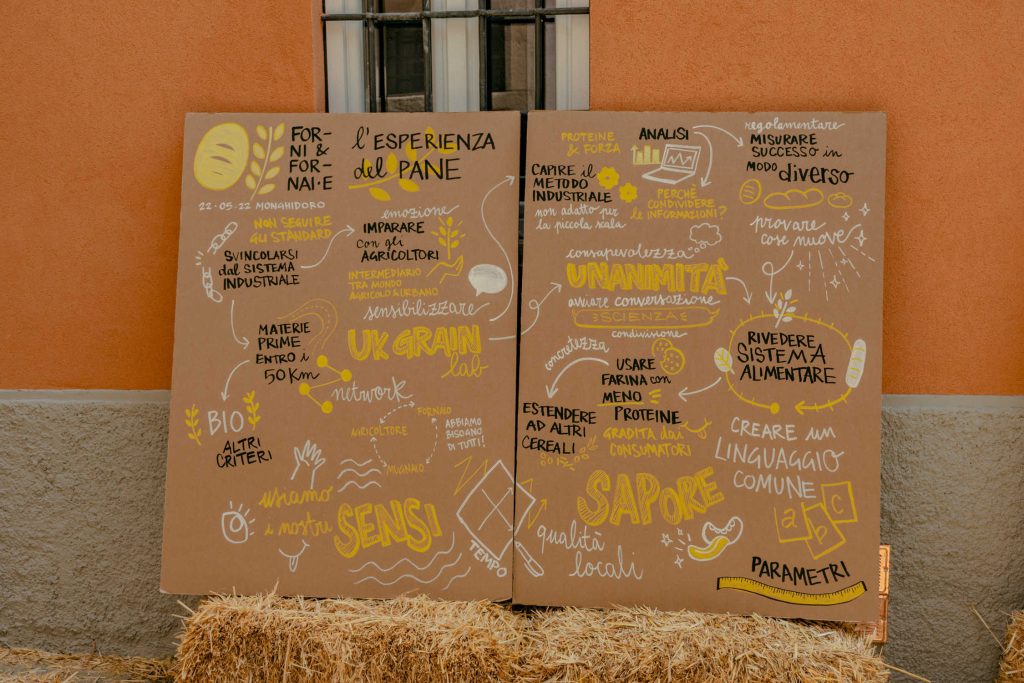 FOR-
NI &
FOR-
NAI·E
l'ESPERIENZA
del PANE
22·05·22 MONGHIDORO
NON SEGUIRE
GLI STANDARD
SVINCOLARSI
dal SISTEMA
INDUSTRIALE
emozione
IMPARARE
con gli
AGRICOLTORI
INTERMEDIARIO
TRA MONDO
AGRICOLO & URBANO
sensibilizzare
MATERIE
PRIME
ENTRO i
50 Km
UK GRAIN
lab
network
BIO
ALTRI
CRITERI
FORNAIO
AGRICOLTORE
MUGNAIO
ABBIAMO
BISOGNO
DI TUTTI!
usiamo
i nostri
SENSI
TEMPO
PROTEINE
& FORZA
ANALISI
regolamentare
MISURARE
SUCCESSO in
MODO diverso
CAPIRE il
METODO
INDUSTRIALE
non adatto per
la piccola scala
PERCHÈ
CONDIVIDERE
le INFORMAZIONI?
provare
cose nuove
consapevolezza
UNANIMITA'
avviare conversazione
SCIENZA
condivisione
concretezza
RIVEDERE
SISTEMA
ALIMENTARE
USARE
FARINA con
MENO
PROTEINE
GRADITA dai
CONSUMATORI
ESTENDERE
AD ALTRI
CEREALI
CREARE un
LINGUAGGIO
COMUNE
a b c
SAPORE
qualità
locali
PARAMETRI